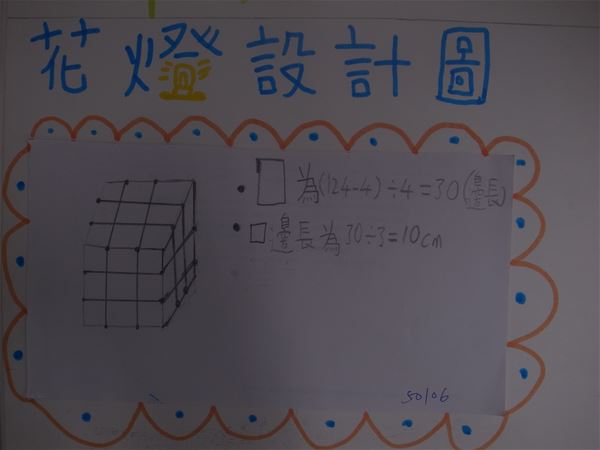 花燈設計圖
為(124-4)÷4=30(邊長)
邊長為30÷3=10cm
50106